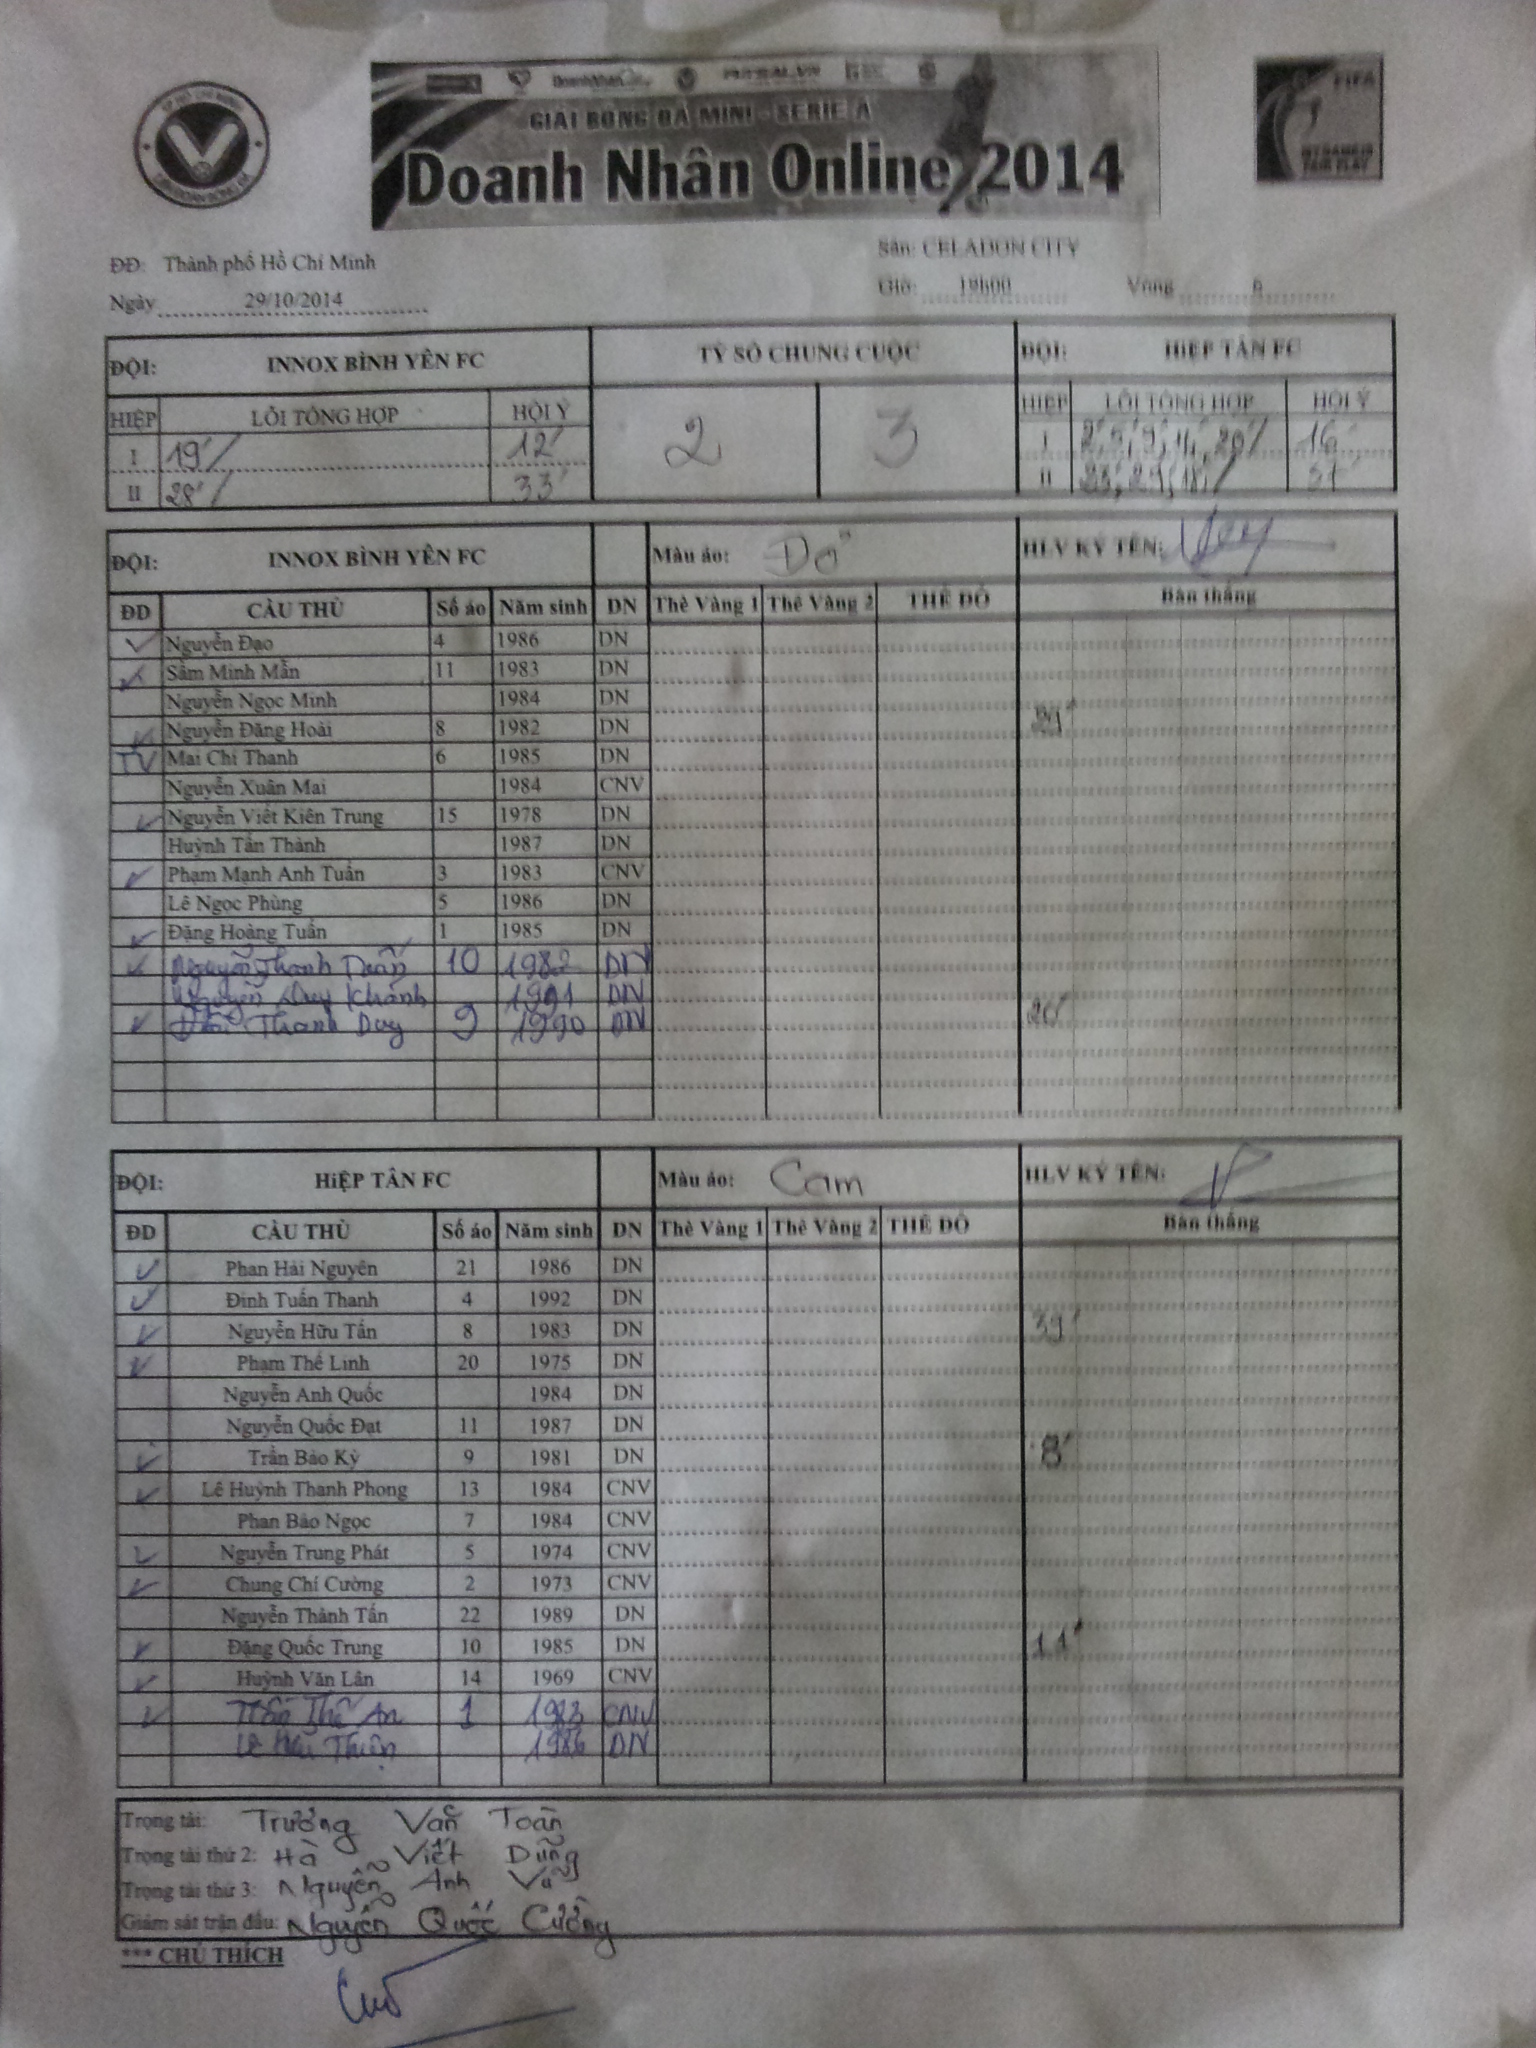 TP HỒ CHÍ MINH
LIÊN ĐOÀN BÓNG ĐÁ
FUTSAL.VN
GIẢI BÓNG ĐÁ MINI - SERIE A
Doanh Nhân Online 2014
FIFA
MY GAME IS
FAIR PLAY
ĐĐ: Thành phố Hồ Chí Minh
Sân: CELADON CITY
Ngày 29/10/2014
Giờ: 19h00 Vòng 6
ĐỘI: INNOX BÌNH YÊN FC TỶ SỐ CHUNG CUỘC ĐỘI: HiỆP TÂN FC
HIỆP LỖI TỔNG HỢP HỘI Ý 2 3 HIỆP LỖI TỔNG HỢP HỘI Ý
I 19' 12' I 2', 5', 9', 11', 20' 16'
II 28' 33' II
ĐỘI: INNOX BÌNH YÊN FC Màu áo: Đỏ HLV KÝ TÊN:
ĐD CẦU THỦ Số áo Năm sinh DN Thẻ Vàng 1 Thẻ Vàng 2 THẺ ĐỎ Bàn thắng
Nguyễn Đạo 4 1986 DN
Sầm Minh Mẫn 11 1983 DN
Nguyễn Ngọc Minh 1984 DN
Nguyễn Đăng Hoài 8 1982 DN
TV Mai Chí Thanh 6 1985 DN
Nguyễn Xuân Mai 1984 CNV
Nguyễn Viết Kiên Trung 15 1978 DN
Huỳnh Tấn Thành 1987 DN
Phạm Mạnh Anh Tuấn 3 1983 CNV
Lê Ngọc Phùng 5 1986 DN
Đặng Hoàng Tuấn 1 1985 DN
Nguyễn Thanh Tuấn 10 1982 DN
Nguyễn Duy Khánh 1991 DN
Thanh Duy 9 1990 DN 20'
ĐỘI: HiỆP TÂN FC Màu áo: Cam HLV KÝ TÊN:
ĐD CẦU THỦ Số áo Năm sinh DN Thẻ Vàng 1 Thẻ Vàng 2 THẺ ĐỎ Bàn thắng
Phan Hải Nguyên 21 1986 DN
Đinh Tuấn Thanh 4 1992 DN
Nguyễn Hữu Tấn 8 1983 DN 39'
Phạm Thế Linh 20 1975 DN
Nguyễn Anh Quốc 1984 DN
Nguyễn Quốc Đạt 11 1987 DN
Trần Bảo Kỳ 9 1981 DN 8'
Lê Huỳnh Thanh Phong 13 1984 CNV
Phan Bảo Ngọc 7 1984 CNV
Nguyễn Trung Phát 5 1974 CNV
Chung Chí Cường 2 1973 CNV
Nguyễn Thành Tấn 22 1989 DN
Đặng Quốc Trung 10 1985 DN 11'
Huỳnh Văn Lân 14 1969 CNV
Trần Thế An 1 1983 CNV
Lê Hữu Thiện 1986 DN
Trọng tài: Trương Văn Toàn
Trọng tài thứ 2: Hà Viết Dũng
Trọng tài thứ 3: Nguyễn Anh Vũ
Giám sát trận đấu: Nguyễn Quốc Cường
*** CHÚ THÍCH